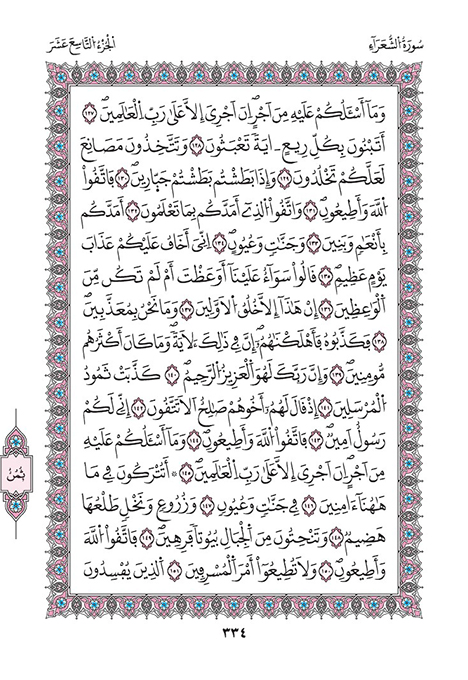 سُورَةُ الشُّعَرَاءِ
الجُزْءُ التَّاسِعَ عَشَرَ
وَمَآ أَسْـَٔلُكُمْ عَلَيْهِ مِنَ اَجْرٍ اِنَ اَجْرِىَ إِلَّا عَلَىٰ رَبِّ اِ۬لْعَٰلَمِينَ ١٢٧
أَتَبْنُونَ بِكُلِّ رِيعٍ ـ ايَةً تَعْبَثُونَ ١٢٨ وَتَتَّخِذُونَ مَصَانِعَ
لَعَلَّكُمْ تَخْلُدُونَ ١٢٩ وَإِذَا بَطَشْتُم بَطَشْتُمْ جَبّ۪ارِينَ ١٣٠ فَاتَّقُوا۟
اُ۬للَّهَ وَأَطِيعُونِ ١٣١ وَاتَّقُوا۟ اُ۬لذِےٓ أَمَدَّكُم بِمَا تَعْلَمُونَ ١٣٢ أَمَدَّكُم
بِأَنْعَٰمٍ وَبَنِينَ ١٣٣ وَجَنَّٰتٍ وَعُيُونٍ ١٣٤ اِنِّىَ أَخَافُ عَلَيْكُمْ عَذَابَ
يَوْمٍ عَظِيمٍ ١٣٥ قَالُوا۟ سَوَآءٌ عَلَيْنَآ أَوَعَظْتَ أَمْ لَمْ تَكُن مِّنَ
اَ۬لْوَٰعِظِينَ ١٣٦ إِنْ هَٰذَآ إِلَّا خُلُقُ اُ۬لَاوَّلِينَ ١٣٧ وَمَا نَحْنُ بِمُعَذَّبِينَ
١٣٨ فَكَذَّبُوهُ فَأَهْلَكْنَٰهُمُۥٓ إِنَّ فِے ذَٰلِكَ ءَلَايَةً وَمَا كَانَ أَكْثَرُهُم
مُّومِنِينَ ١٣٩ وَإِنَّ رَبَّكَ لَهُوَ اَ۬لْعَزِيزُ اُ۬لرَّحِيمُ ١٤٠ كَذَّبَتْ ثَمُودُ
اُ۬لْمُرْسَلِينَ ١٤١ إِذْ قَالَ لَهُمُۥٓ أَخُوهُمْ صَٰلِحٌ اَلَا تَتَّقُونَ ١٤٢ إِنِّے لَكُمْ
رَسُولٌ اَمِينٌ ١٤٣ فَاتَّقُوا۟ اُ۬للَّهَ وَأَطِيعُونِ ١٤٤ وَمَآ أَسْـَٔلُكُمْ عَلَيْهِ
مِنَ اَجْرٍ اِنَ اَجْرِىَ إِلَّا عَلَىٰ رَبِّ اِ۬لْعَٰلَمِينَ ١٤٥ ۞ أَتُتْرَكُونَ فِے مَا
هَٰهُنَآ ءَامِنِينَ ١٤٦ فِے جَنَّٰتٍ وَعُيُونٍ ١٤٧ وَزُرُوعٍ وَنَخْلٍ طَلْعُهَا
هَضِيمٌ ١٤٨ وَتَنْحِتُونَ مِنَ اَ۬لْجِبَالِ بُيُوتاً فَرِهِينَ ١٤٩ فَاتَّقُوا۟ اُ۬للَّهَ
وَأَطِيعُونِ ١٥٠ وَلَا تُطِيعُوٓا۟ أَمْرَ اَ۬لْمُسْرِفِينَ ١٥١ اَ۬لذِينَ يُفْسِدُونَ
ثُمُنْ
٣٣٤